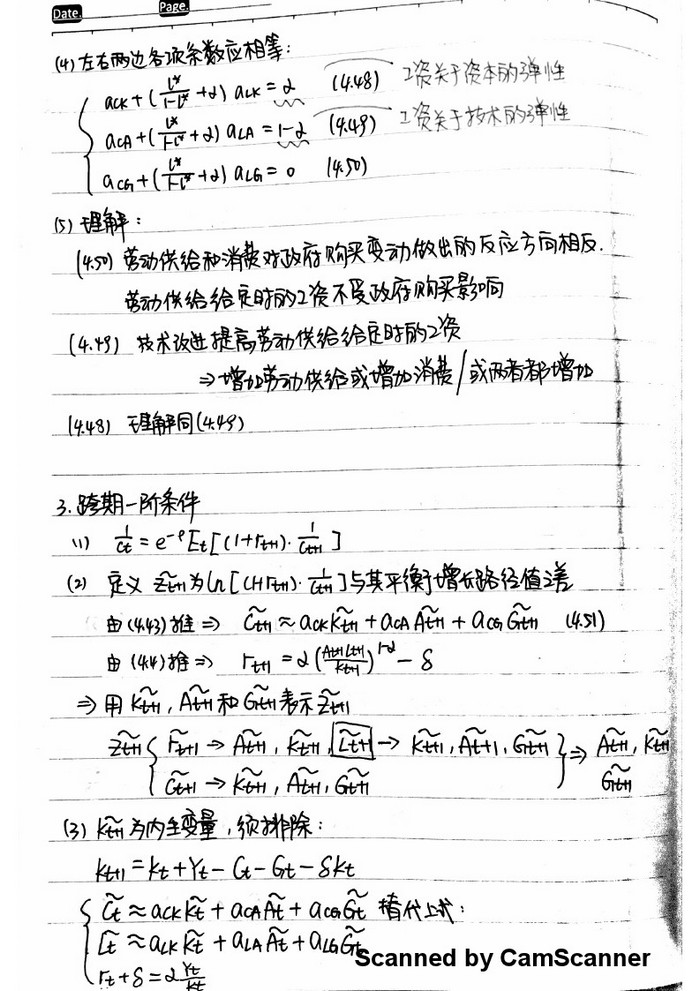 Date. Page.
(4) 左右两边各项系数应相等:
a_CK + (l*/(1-l*) + α) a_LK = α (4.48) 工资关于资本的弹性
a_CA + (l*/(1-l*) + α) a_LA = 1-α (4.49) 工资关于技术的弹性
a_CG + (l*/(1-l*) + α) a_LG = 0 (4.50)
(5) 理解:
(4.50) 劳动供给和消费对政府购买变动做出的反应方向相反.
劳动供给给定时的工资不受政府购买影响
(4.49) 技术改进提高劳动供给给定时的工资
⇒ 增加劳动供给或增加消费/或两者都增加
(4.48) 理解同(4.49)
3. 跨期一阶条件
(1) 1/Ct = e^-ρ Et[(1+rt+1)·1/Ct+1]
(2) 定义 Z̃t+1为ln[(1+rt+1)·1/Ct+1]与其平衡增长路径值之差
由(4.43)推⇒ C̃t+1 ≈ a_CK K̃t+1 + a_CA Ãt+1 + a_CG G̃t+1 (4.51)
由(4.4)推⇒ rt+1 = α(At+1Lt+1/Kt+1)^1-α - δ
⇒ 用 K̃t+1, Ãt+1 和 G̃t+1 表示 Z̃t+1
Z̃t+1 { r̃t+1 → Ãt+1, K̃t+1, L̃t+1 → K̃t+1, Ãt+1, G̃t+1 } ⇒ Ãt+1, K̃t+1
C̃t+1 → K̃t+1, Ãt+1, G̃t+1 G̃t+1
(3) K̃t+1为内生变量, 须排除:
Kt+1 = Kt + Yt - Ct - Gt - δKt
C̃t ≈ a_CK K̃t + a_CA Ãt + a_CG G̃t 替代上式:
L̃t ≈ a_LK K̃t + a_LA Ãt + a_LG G̃t
rt + δ = α Yt/Kt
Scanned by CamScanner